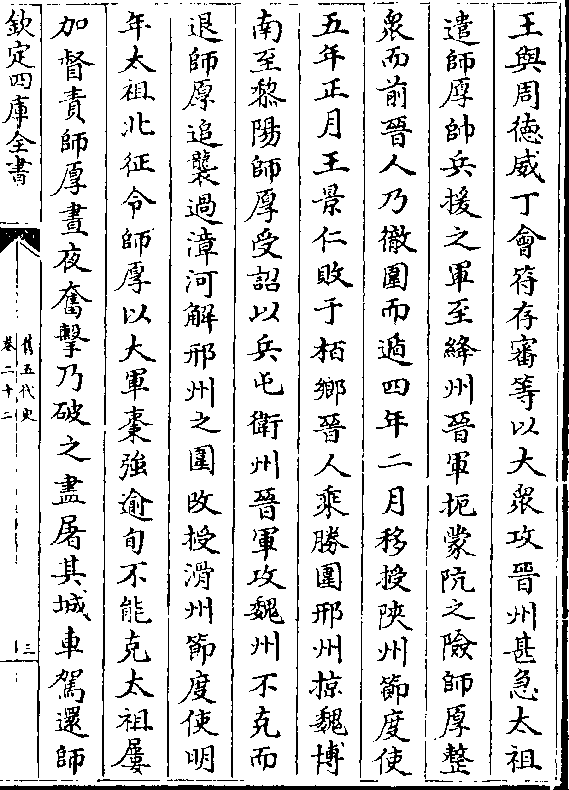 王與周德威丁會符存審等以大衆攻晉州甚急太祖
遣師厚帥兵援之軍至絳州晉軍扼蒙阬之險師厚整
衆而前晉人乃徹圍而遁四年二月移授陜州節度使
五年正月王景仁敗于栢鄉晉人乘勝圍邢州掠魏博
南至黎陽師厚受詔以兵屯衛州晉軍攻魏州不克而
退師厚追襲過漳河解邢州之圍改授滑州節度使明
年太祖北征令師厚以大軍棗強逾旬不能克太祖屢
加督責師厚晝夜奮擊乃破之盡屠其城車駕還師
欽定四庫全書
舊五代史
卷二十二
三